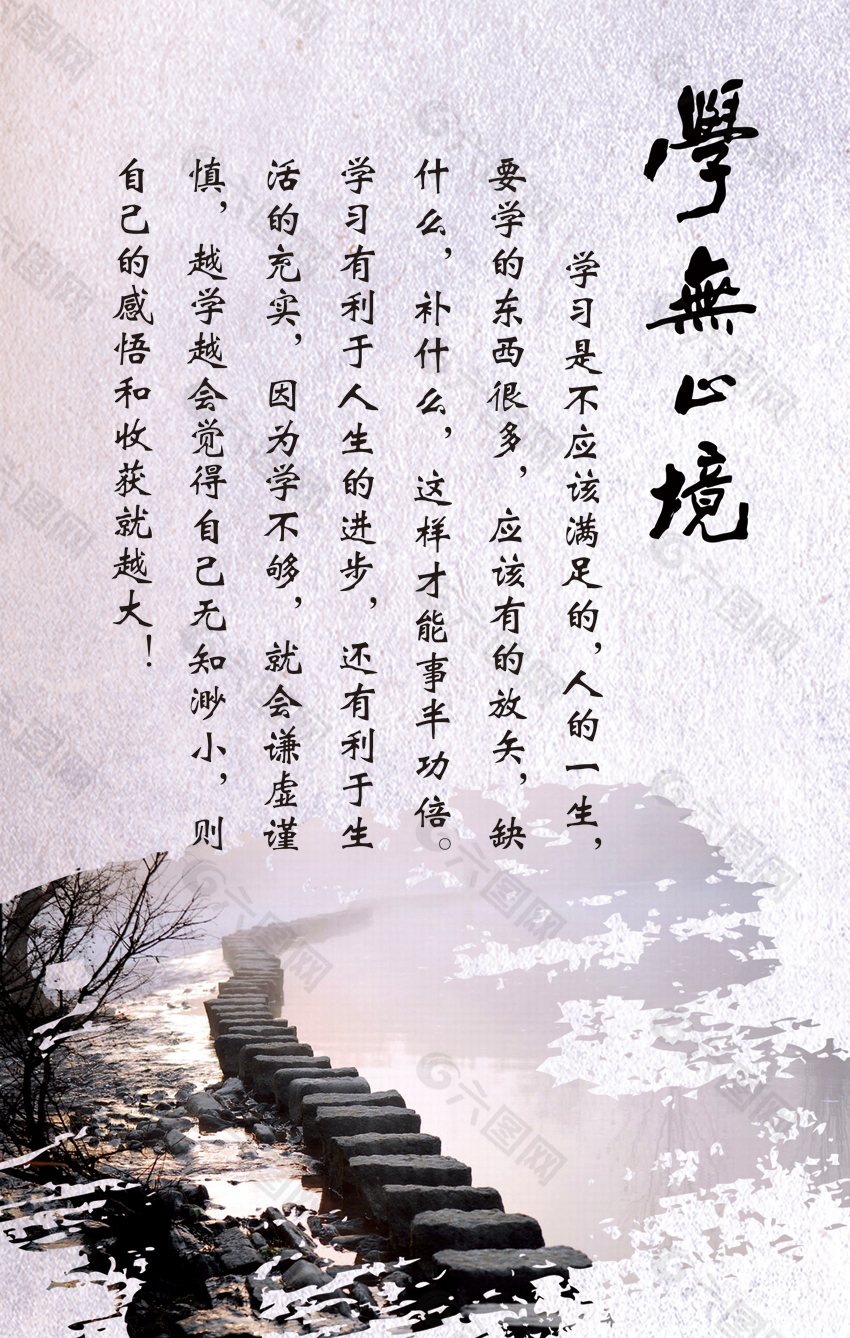 學無止境
学习是不应该满足的，人的一生，
要学的东西很多，应该有的放矢，缺
什么，补什么，这样才能事半功倍。
学习有利于人生的进步，还有利于生
活的充实，因为学不够，就会谦虚谨
慎，越学越会觉得自己无知渺小，则
自己的感悟和收获就越大！
六图网